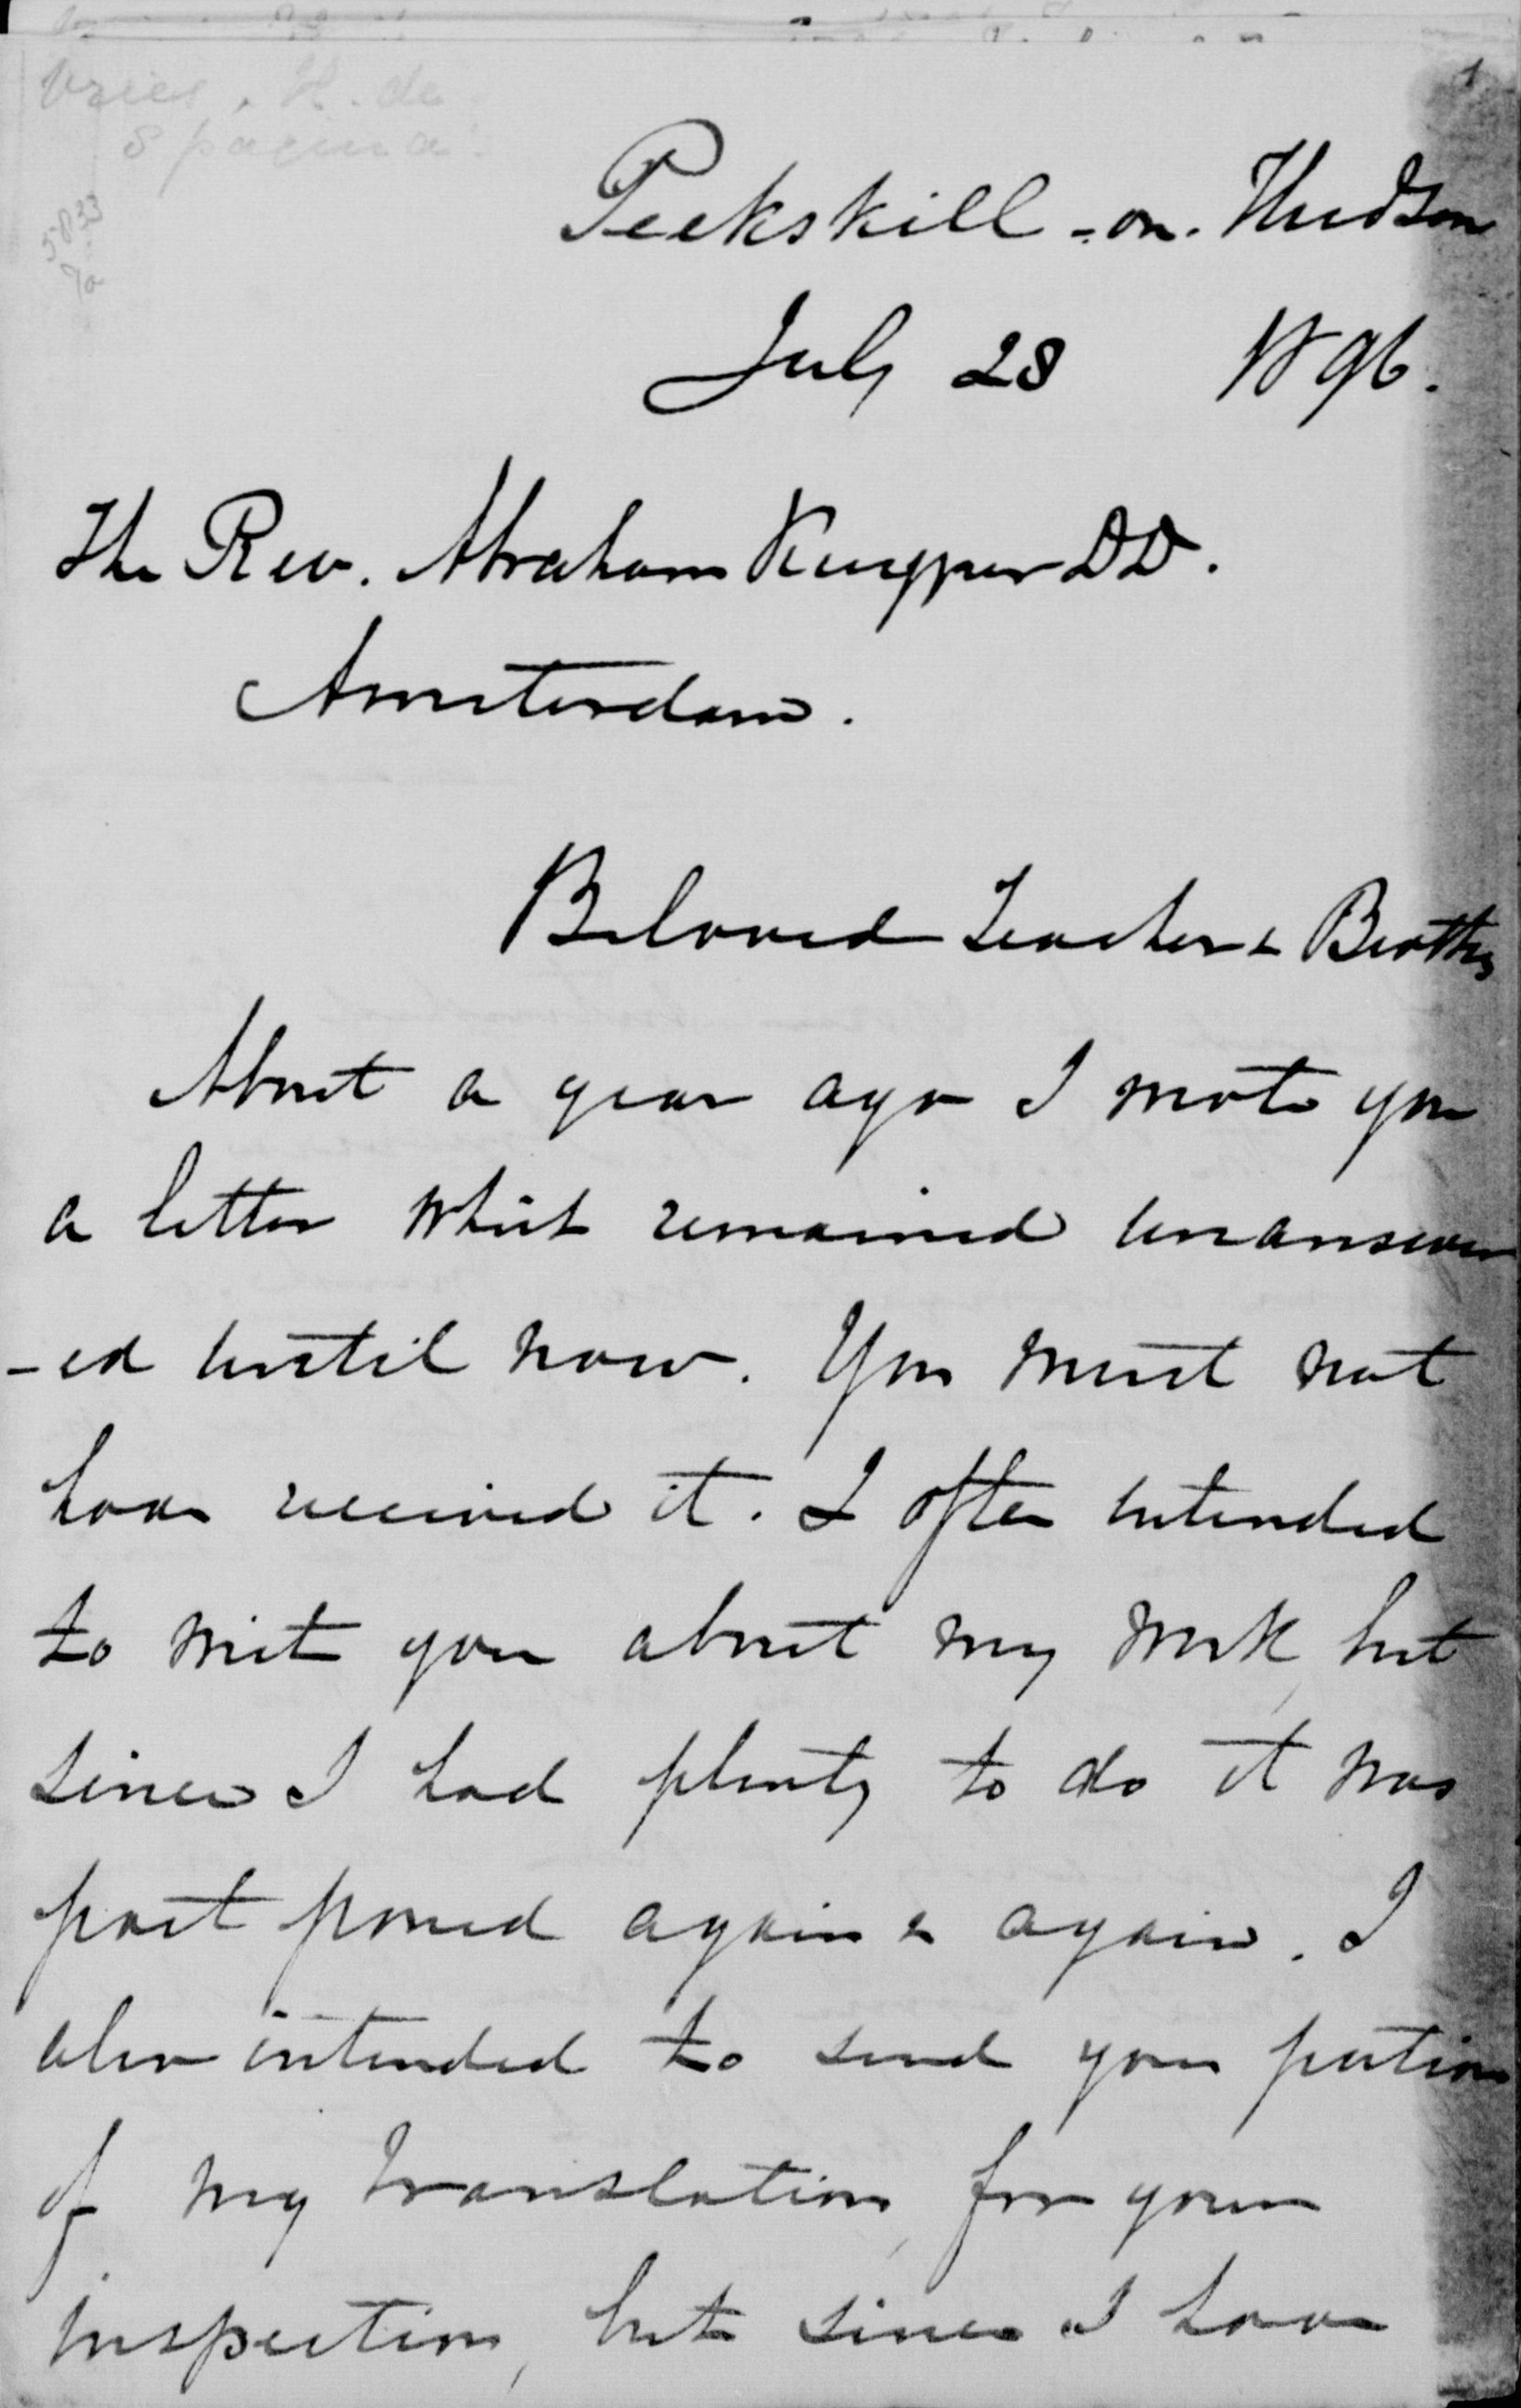 1
Vries, H. de
8 pagina's
5833
Peekskill-on-Hudson
July 28 1896.
The Rev. Abraham Kuyper DD.
Amsterdam.
Beloved Teacher & Brother
About a year ago I wrote you
a letter which remained unanswer
-ed until now. You must not
have received it. I often intended
to write you about my work, but
since I had plenty to do it was
post poned again & again. I
also intended to send you portions
of my translation, for your
inspection, but since I have